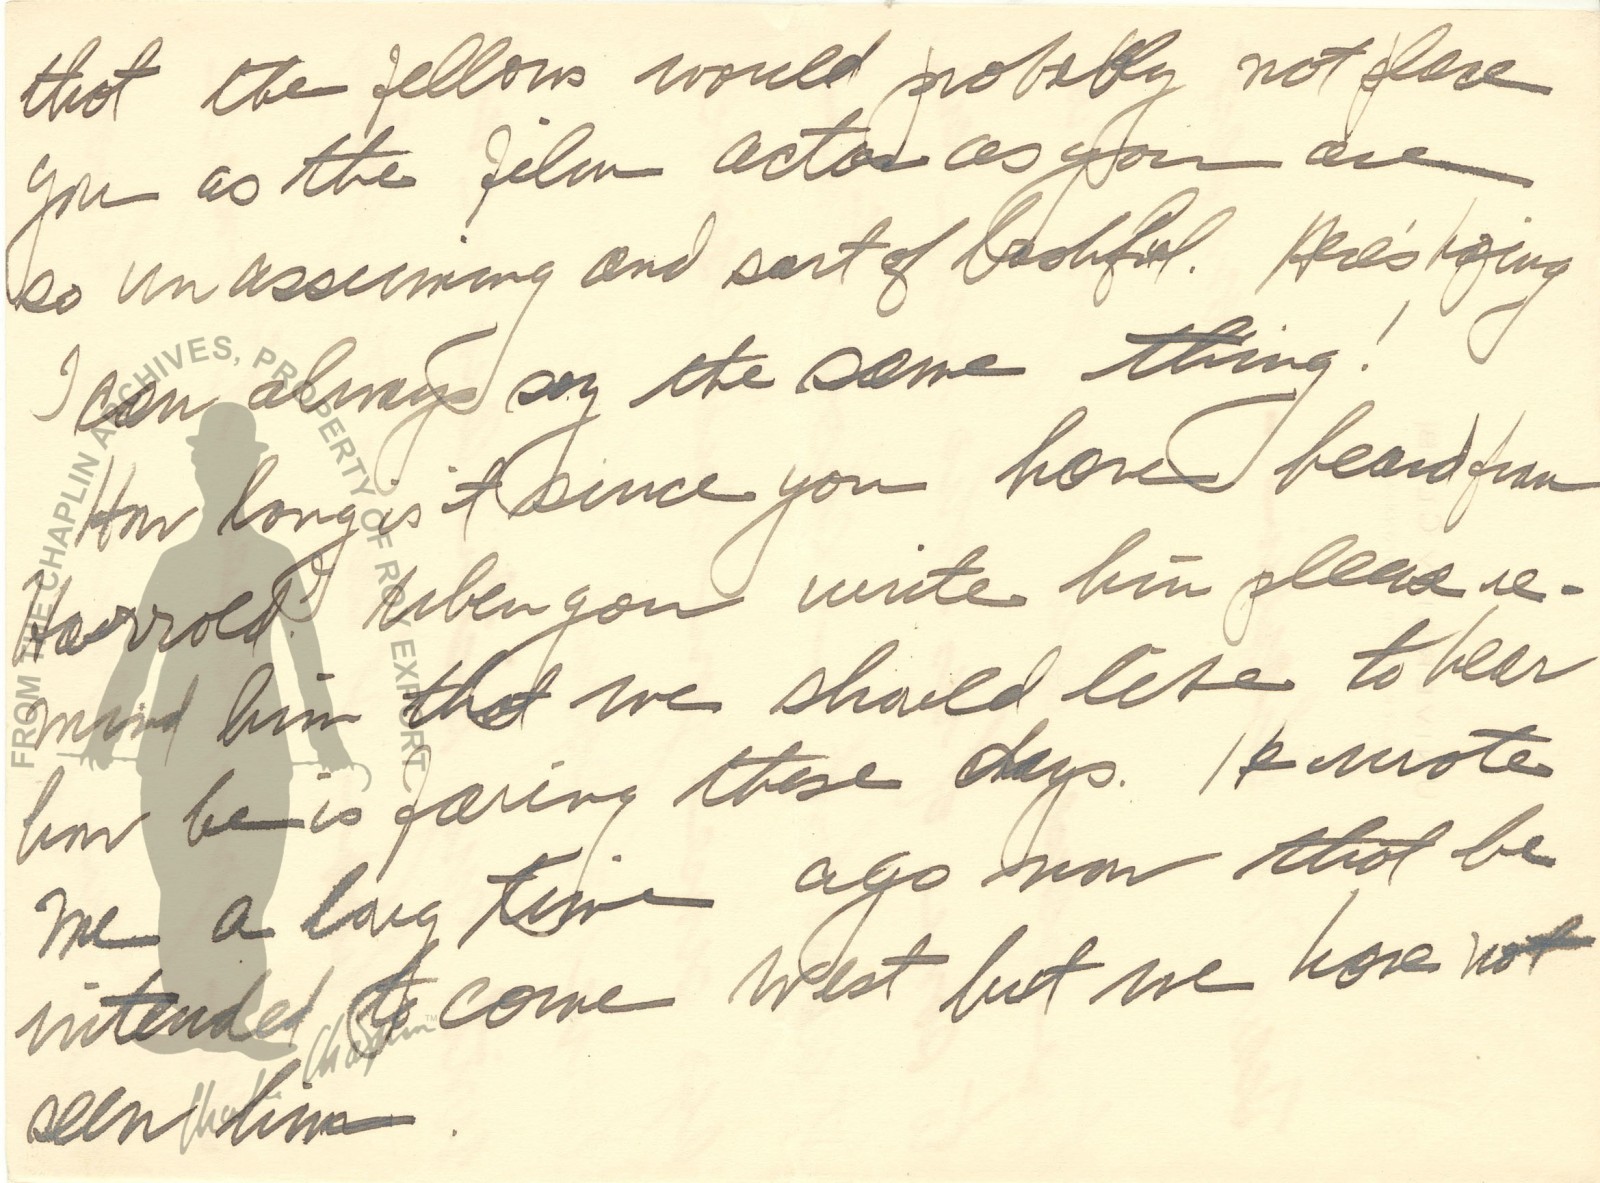 that the fellows would probably not place
you as the film actor as you are
so unassuming and sort of bashful. Here's hoping
I can always say the same thing!
How long is it since you have heard from
Harrold? When you write him please re-
mind him that we should like to hear
how he is faring these days. He wrote
me a long time ago now that he
intended to come west but we have not
seen him.
FROM THE CHAPLIN ARCHIVES, PROPERTY OF ROY EXPORT
Charlie Chaplin™